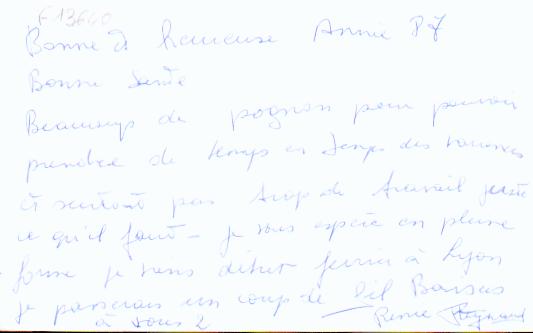 F 13640
Bonne & heureuse Année 87
Bonne Santé
Beaucoup de pognon pour pouvoir
prendre de temps en temps des vacances
et surtout pas trop de travail juste
ce qu'il faut - je vous espère en pleine
forme je viens début février à Lyon
je passerais un coup de fil Baisers
à vous 2 Pierre